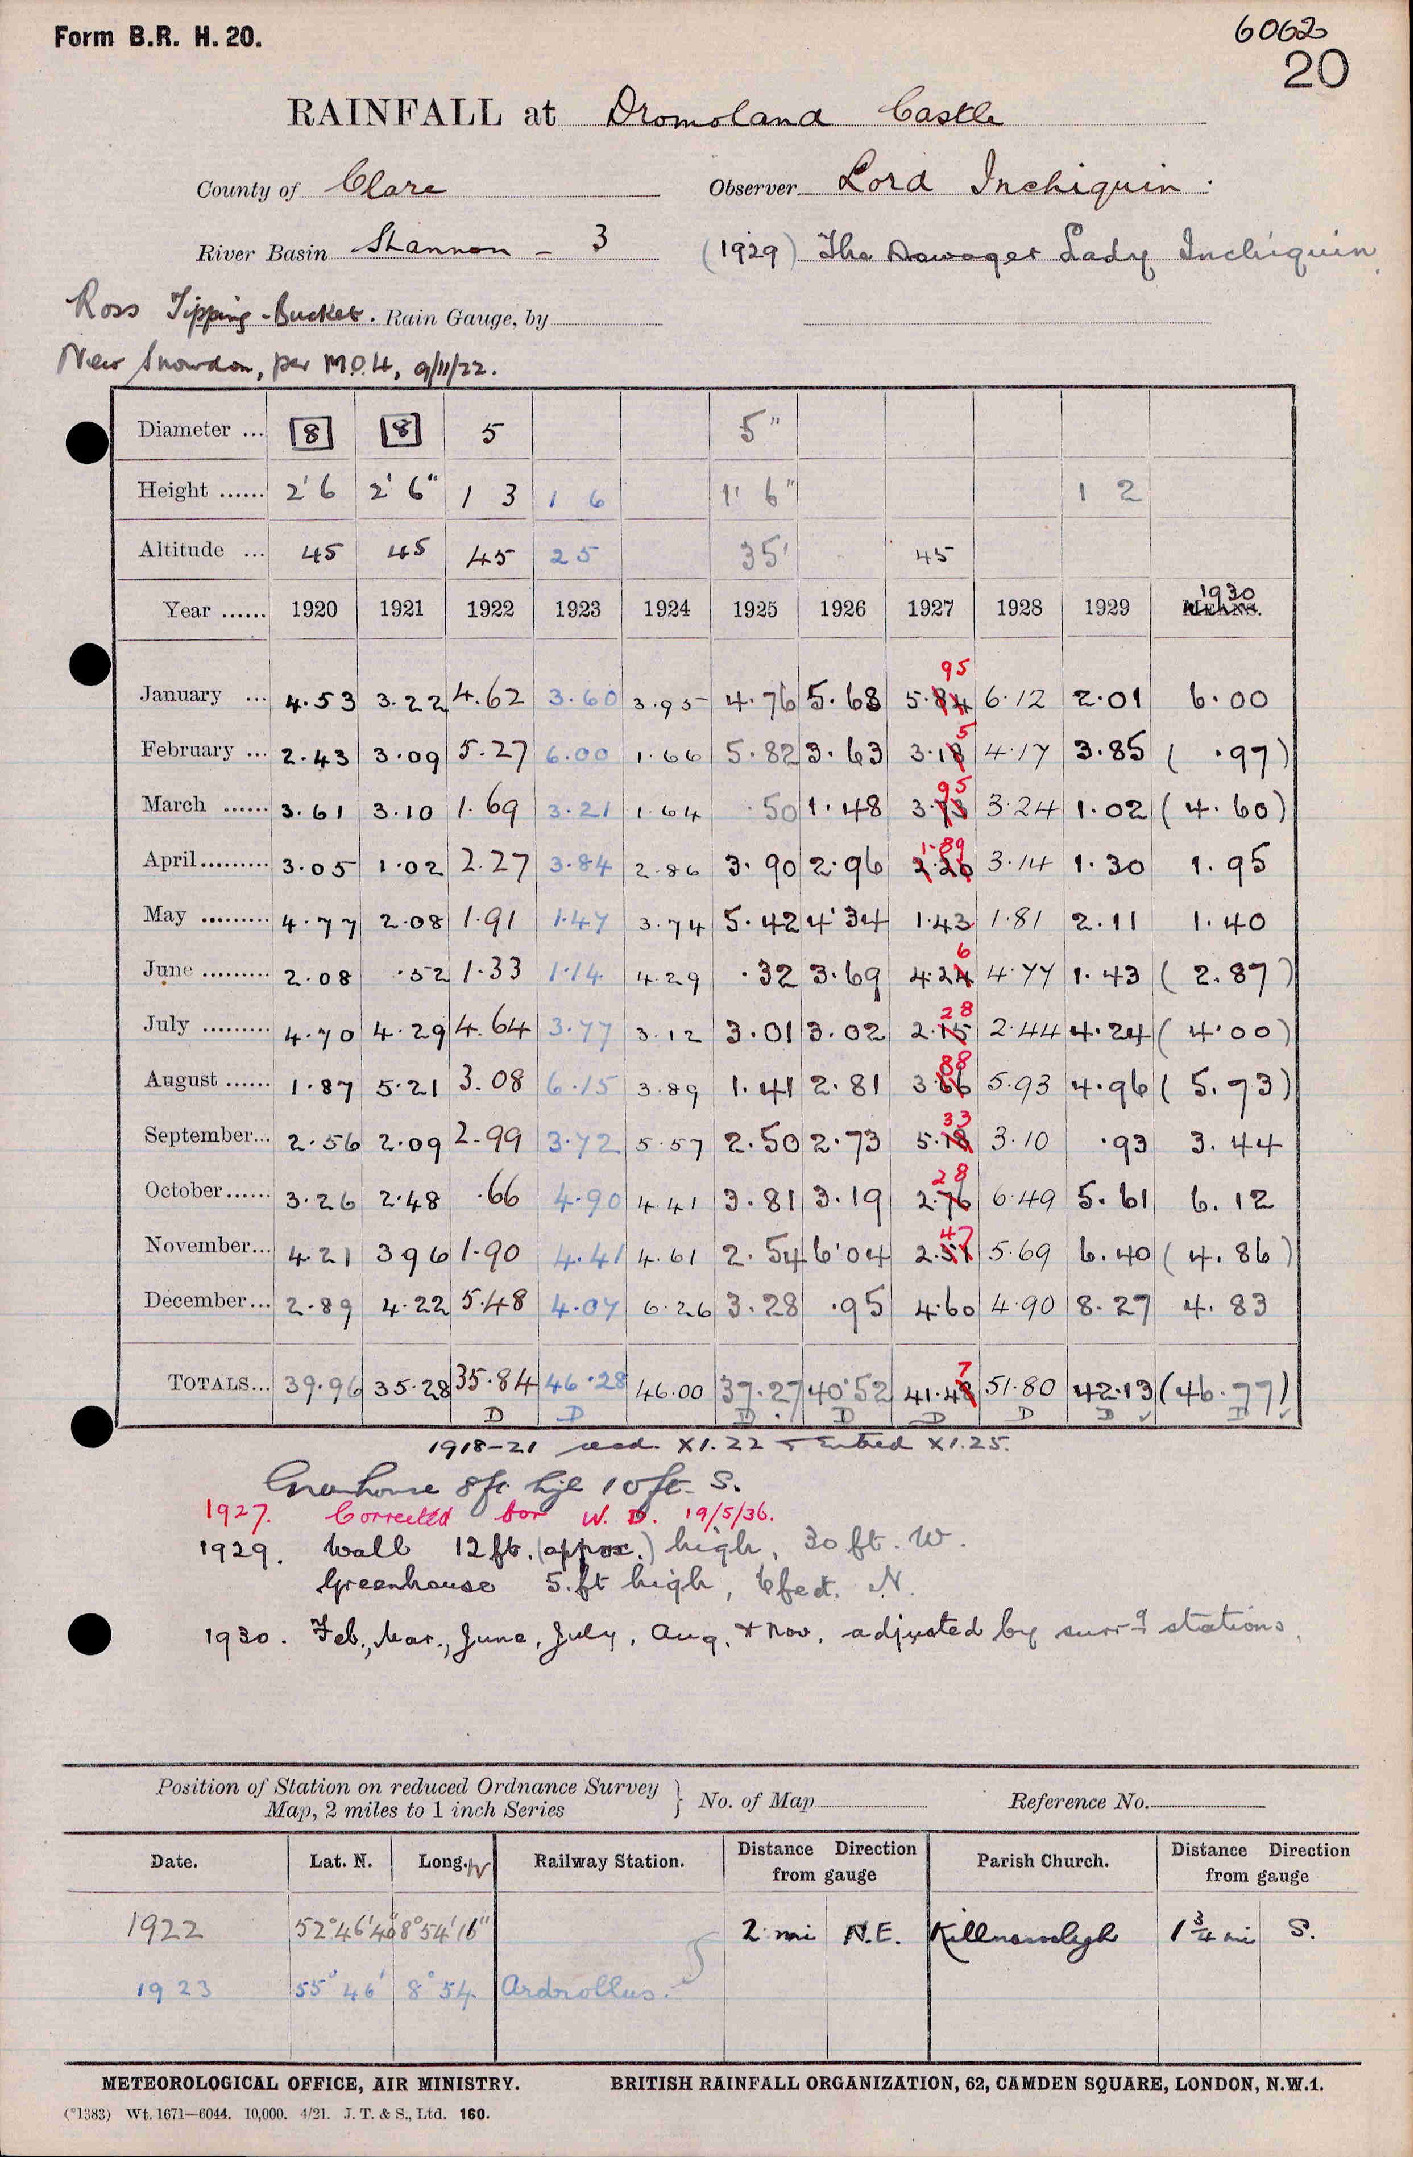 Form B.R. H. 20.
6062
20
RAINFALL at Dromoland Castle
County of Clare Observer Lord Inchiquin.
River Basin Shannon - 3 (1929) The Dowager Lady Inchiquin
Ross Tipping-Bucket. Rain Gauge, by
New Snowdon, per M.O.H, 9/11/22.
Diameter ... 8 8 5 5"
Height ...... 2' 6 2' 6" 1 3 1 6 1' 6" 1 2
Altitude ... 45 45 45 25 35' 45
Year ...... 1920 1921 1922 1923 1924 1925 1926 1927 1928 1929 MEANS. 1930
January ... 4.53 3.22 4.62 3.60 3.95 4.76 5.68 5.84 95 6.12 2.01 6.00
February ... 2.43 3.09 5.27 6.00 1.66 5.82 3.63 3.18 5 4.17 3.85 ( .97)
March ...... 3.61 3.10 1.69 3.21 1.64 .50 1.48 3.73 95 3.24 1.02 (4.60)
April ......... 3.05 1.02 2.27 3.84 2.86 3.90 2.96 2.20 1.89 3.14 1.30 1.95
May ......... 4.77 2.08 1.91 1.47 3.74 5.42 4.34 1.43 1.81 2.11 1.40
June ......... 2.08 .52 1.33 1.14 4.29 .32 3.69 4.24 6 4.77 1.43 (2.87)
July ......... 4.70 4.29 4.64 3.77 3.12 3.01 3.02 2.15 28 2.44 4.24 (4.00)
August ...... 1.87 5.21 3.08 6.15 3.89 1.41 2.81 3.66 88 5.93 4.96 (5.73)
September... 2.56 2.09 2.99 3.72 5.57 2.50 2.73 5.18 33 3.10 .93 3.44
October...... 3.26 2.48 .66 4.90 4.41 3.81 3.19 2.76 28 6.49 5.61 6.12
November... 4.21 3 96 1.90 4.41 4.61 2.54 6.04 2.51 47 5.69 6.40 (4.86)
December... 2.89 4.22 5.48 4.07 6.26 3.28 .95 4.60 4.90 8.27 4.83
TOTALS... 39.96 35.28 35.84 46.28 46.00 37.27 40.52 41.48 7 51.80 42.13 (46.77)
D D D D D D D D
1918-21 read X1.22 & entred X1.25.
Greenhouse 8ft high 10ft. S.
1927. Corrected for W. D. 19/5/36.
1929. Wall 12ft. (approx.) high, 30 ft. W.
Greenhouse 5.ft high, 6feet. N.
1930. Feb., Mar., June, July, Aug, & Nov, adjusted by surrg stations.
Position of Station on reduced Ordnance Survey
Map, 2 miles to 1 inch Series } No. of Map Reference No.
Date. Lat. N. Long. W Railway Station. Distance Direction from gauge Parish Church. Distance Direction from gauge
1922 52°46'40" 8°54'16" 2 mi N.E. 1 3/4 mi S.
1923 55° 46' 8° 54
METEOROLOGICAL OFFICE, AIR MINISTRY. BRITISH RAINFALL ORGANIZATION, 62, CAMDEN SQUARE, LONDON, N.W.1.
(*1383) Wt. 1671—6044. 10,000. 4/21. J. T. & S., Ltd. 160.